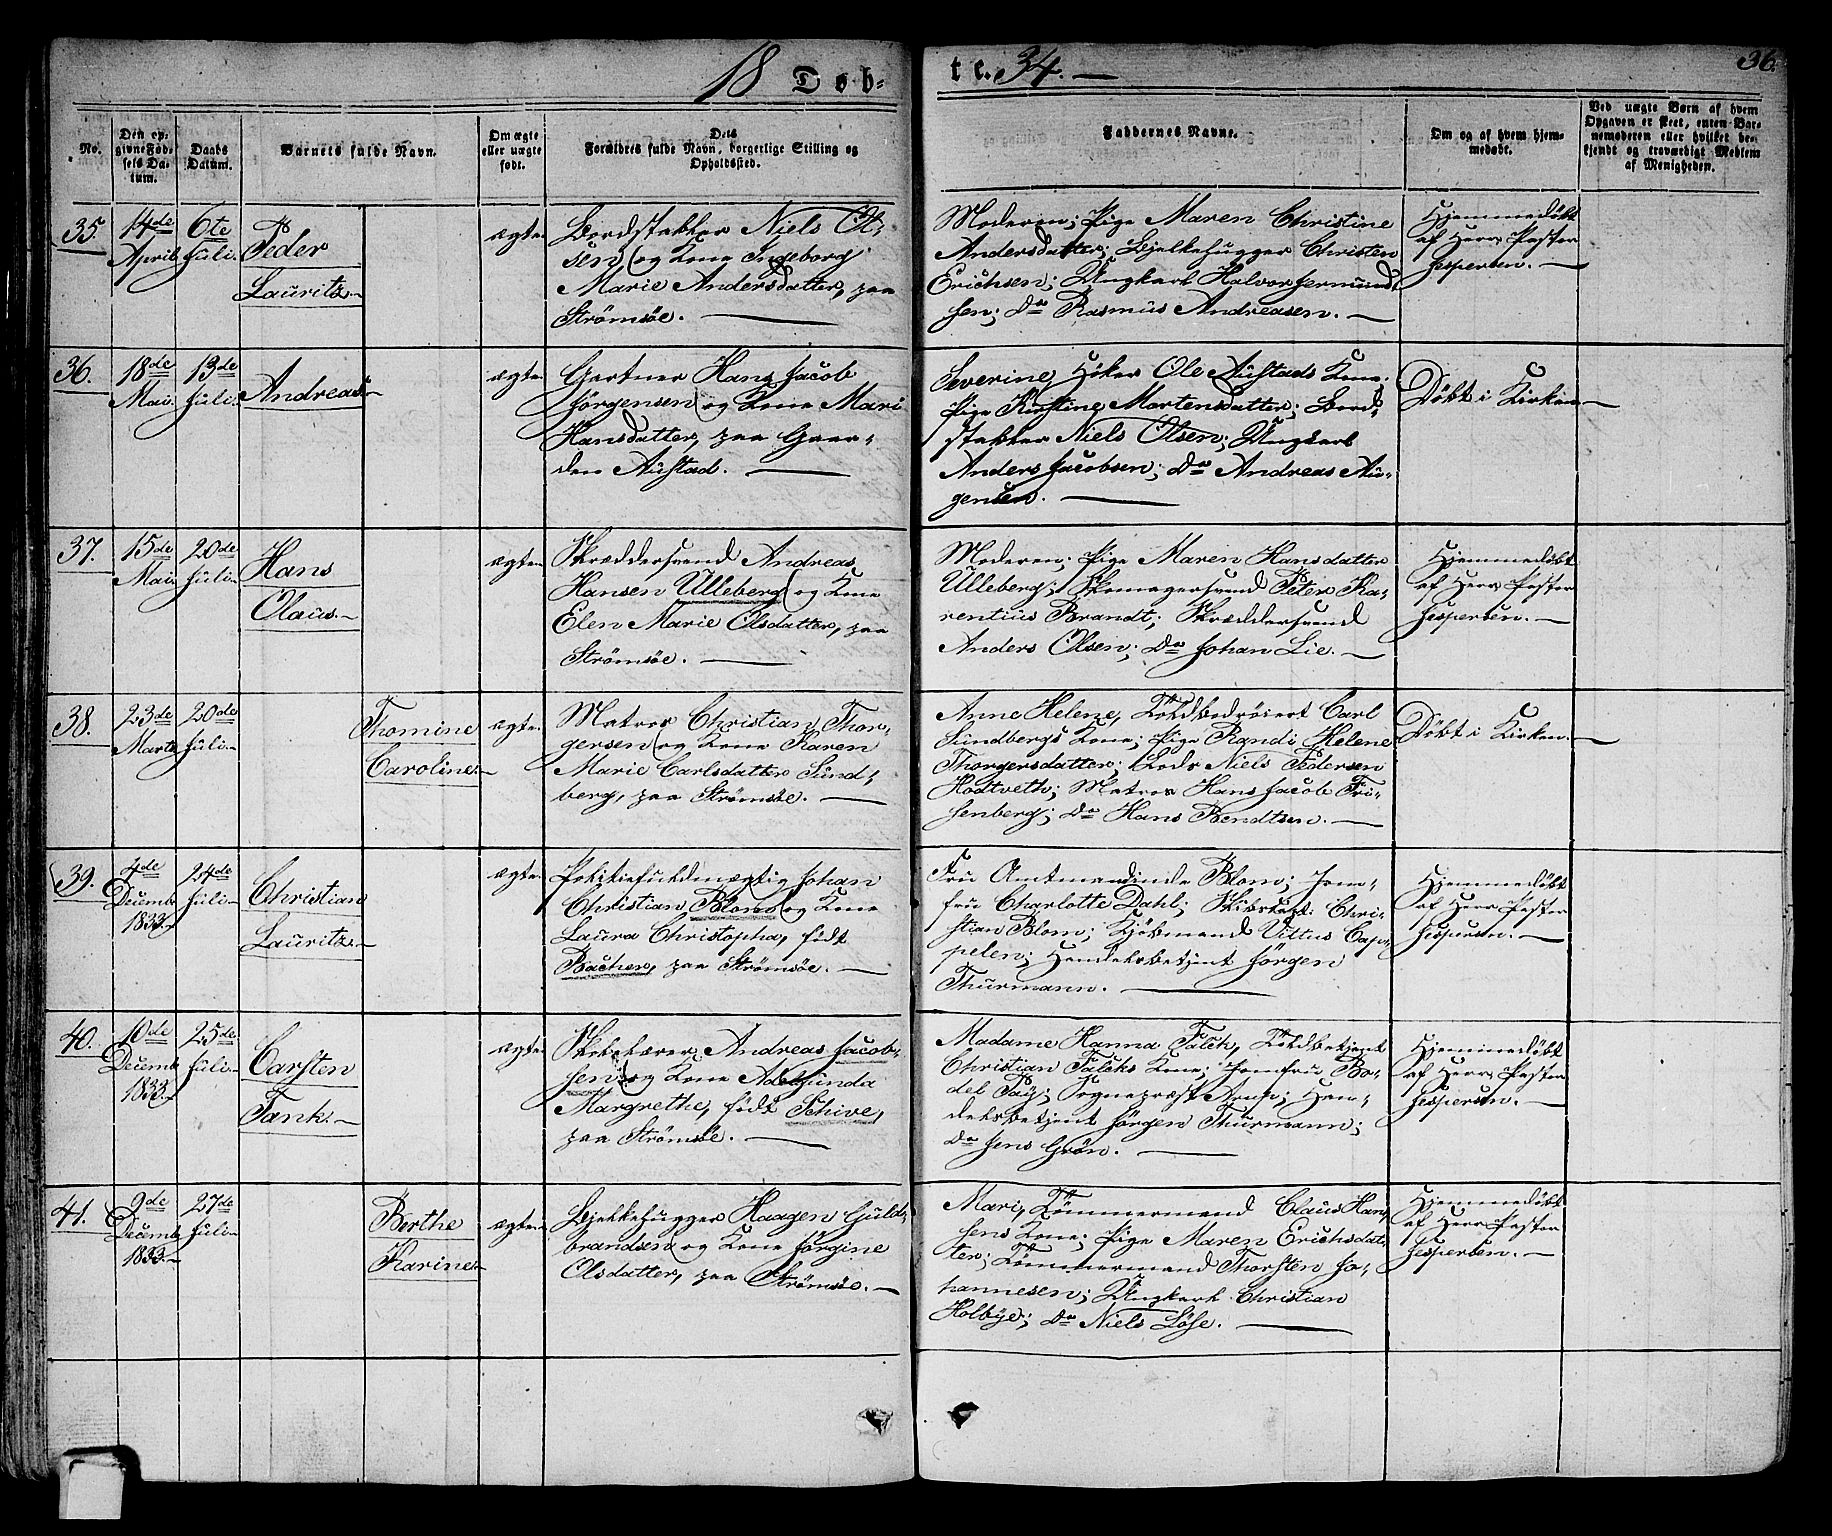 18 Døb-
te. 34.
36.
No.
Den op-
givne Fød-
sels Da-
tum.
Daabs
Datum.
Barnets fulde Navn.
Om ægte
eller uægte
født.
Dets
Forældres fulde Navn, borgerlige Stilling og
Opholdssted.
Faddernes Navne.
Om og af hvem hjem-
medøbt.
Ved uægte Børn af hvem
Opgaven er skeet, enten Bar-
nemoderen eller hvilket be-
kjendt og troværdigt Medlem
af Menigheden.
35.
14de
April
6te
Juli
Peder
Lauritz
ægte
Bordstabler Niels Ol-
sen og Kone Ingeborg
Marie Andersdatter, paa
Strömsöe.
Moderen; Pige Maren Christine
Andersdatter; Bjelkehugger Christen
Erichsen; Ungkarl Halvor Jermund-
sen; do Rasmus Andreasen.
Hjemmedöbt
af Herr Pastor
Jespersen.
36.
18de
Mai
13de
Juli
Andreas
ægte
Gartner Hans Jacob
Jörgensen og Kone Mari
Hansdatter, paa Gaar-
den Austad.
Severine, Höker Ole Austads Kone;
Pige Kirstine Mortensdatter; Bord-
stabler Niels Olsen; Ungkarl
Anders Jacobsen; do Andreas Au-
gensen.
Döbt i Kirken
37.
15de
Mai
20de
Juli
Hans
Olaus
ægte
Skræddersvend Andreas
Hansen Ulleberg og Kone
Elen Marie Olsdatter, paa
Strömsöe.
Moderen; Pige Maren Hansdatter
Ulleberg; Skomagersvend Peter Ka-
rentius Brandt; Skræddersvend
Anders Olsen; do Johan Lie.
Hjemmedöbt
af Herr Pastor
Jespersen.
38.
23de
Marts
20de
Juli
Thomine
Caroline
ægte
Matros Christian Thor-
gersen og Kone Karen
Marie Carlsdatter Sund-
berg, paa Strömsöe.
Anne Helene, Toldbedröiert Carl
Sundbergs Kone; Pige Randi Helene
Thorgersdatter; Lods Niels Pedersen
Hodtveth; Matros Hans Jacob Fri-
senberg; do Hans Bendtsen.
Döbt i Kirken.
39.
4de
Decemb
1833
24de
Juli
Christian
Lauritz
ægte
Politiefuldmægtig Johan
Christian Blom og Kone
Laura Christopha, födt
Bacher, paa Strömsöe.
Fru Amtmandinde Blom; Jom-
fru Charlotte Dahl; Skibskapt: Chri-
stian Blom; Kjöbmand Vittus Cap-
pelen; Handelsbetjent Jörgen
Thurmann.
Hjemmedöbt
af Herr Pastor
Jespersen.
40.
10de
Decemb
1833
25de
Juli
Carsten
Tank.
ægte
Andreas Jacob-
sen og Kone Adelsunda
Margrethe, födt Schive,
paa Strömsöe.
Madame Hanna Falck, Toldbetjent
Christian Falcks Kone; Jomfru Bo-
del Pay; Sogneprest Arup; Han-
delsbetjent Jörgen Thurmann;
do Jens Grön.
Hjemmedöbt
af Herr Pastor
Jespersen.
41.
9de
Decemb
1833
27de
Juli
Berthe
Karine
ægte
Bjelkehugger Haagen Guld-
brandsen og Kone Jörgine
Olsdatter, paa Strömsöe.
Mari, Tömmermand Claus Han-
sens Kone; Pige Maren Erichsdat-
ter; Tömmermand Thorsten Jo-
hannesen; Ungkarl Christian
Holbye; do Niels Löse.
Hjemmedöbt
af Herr Pastor
Jespersen.